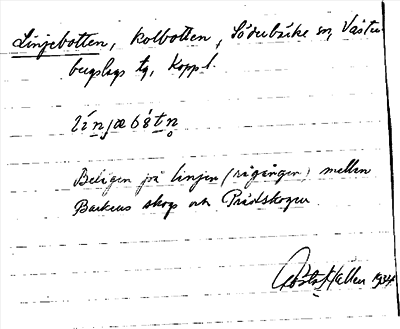 Linjebotten, kolbotten, Söderbärke sn, Väster-
bergslags tg, Kopp l.
Beligen på linjen (rågången) mellan
Barkens skog och Prästskogen
Gösta Hallén 1934